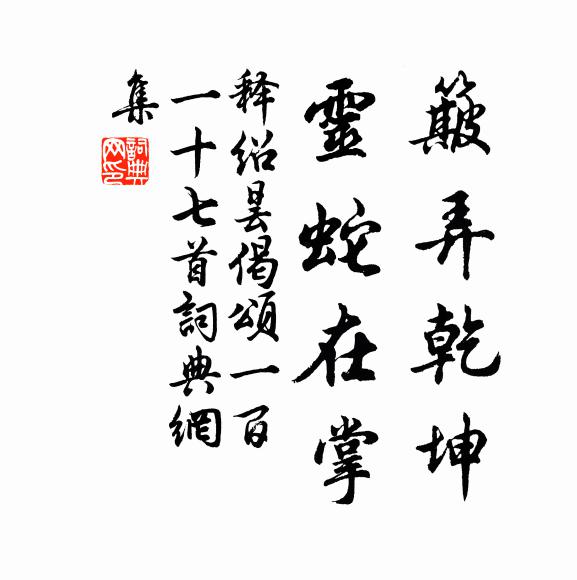 簸弄乾坤
靈蛇在掌
释紹曇偈頌一百
一十七首詞典網
集
詞典网印